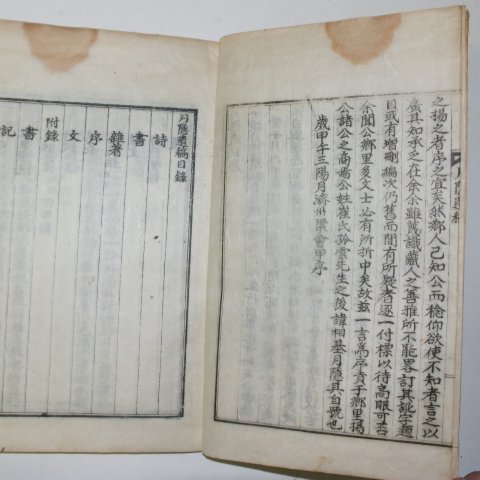 之揚之者序之宜矣然鄉人已知公而稔仰欲使不知者言之以
廣其知承之在余余雖蔑識藏人之善雅所不能畧訂其訛字題
目或有增刪編次仍舊而間有所疑者逐一付標以待高眼可否
余聞公鄉里多文士必有所折中矣故玆一言爲序責于鄉里揚
公諸公之裔公姓崔氏孤雲先生之後諱相基月隱其自號也
歲甲午三陽月濟州梁會甲序
月隱遺稿
月隱遺稿目錄
詩
書
雜著
序
文
附錄
書
記